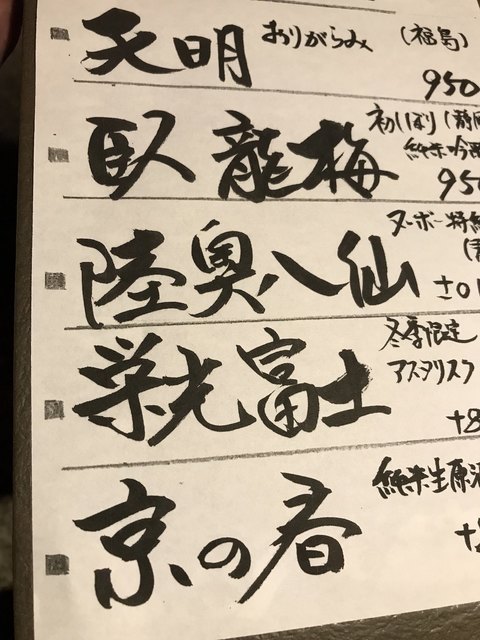 天明 おりがらみ (福島)
950
臥龍梅 初しぼり (静岡
純米吟醸
950
陸奥八仙 ヌーボー特純
±0
栄光冨士 冬季限定
アスタリスク
+8
京の春 純米生原酒